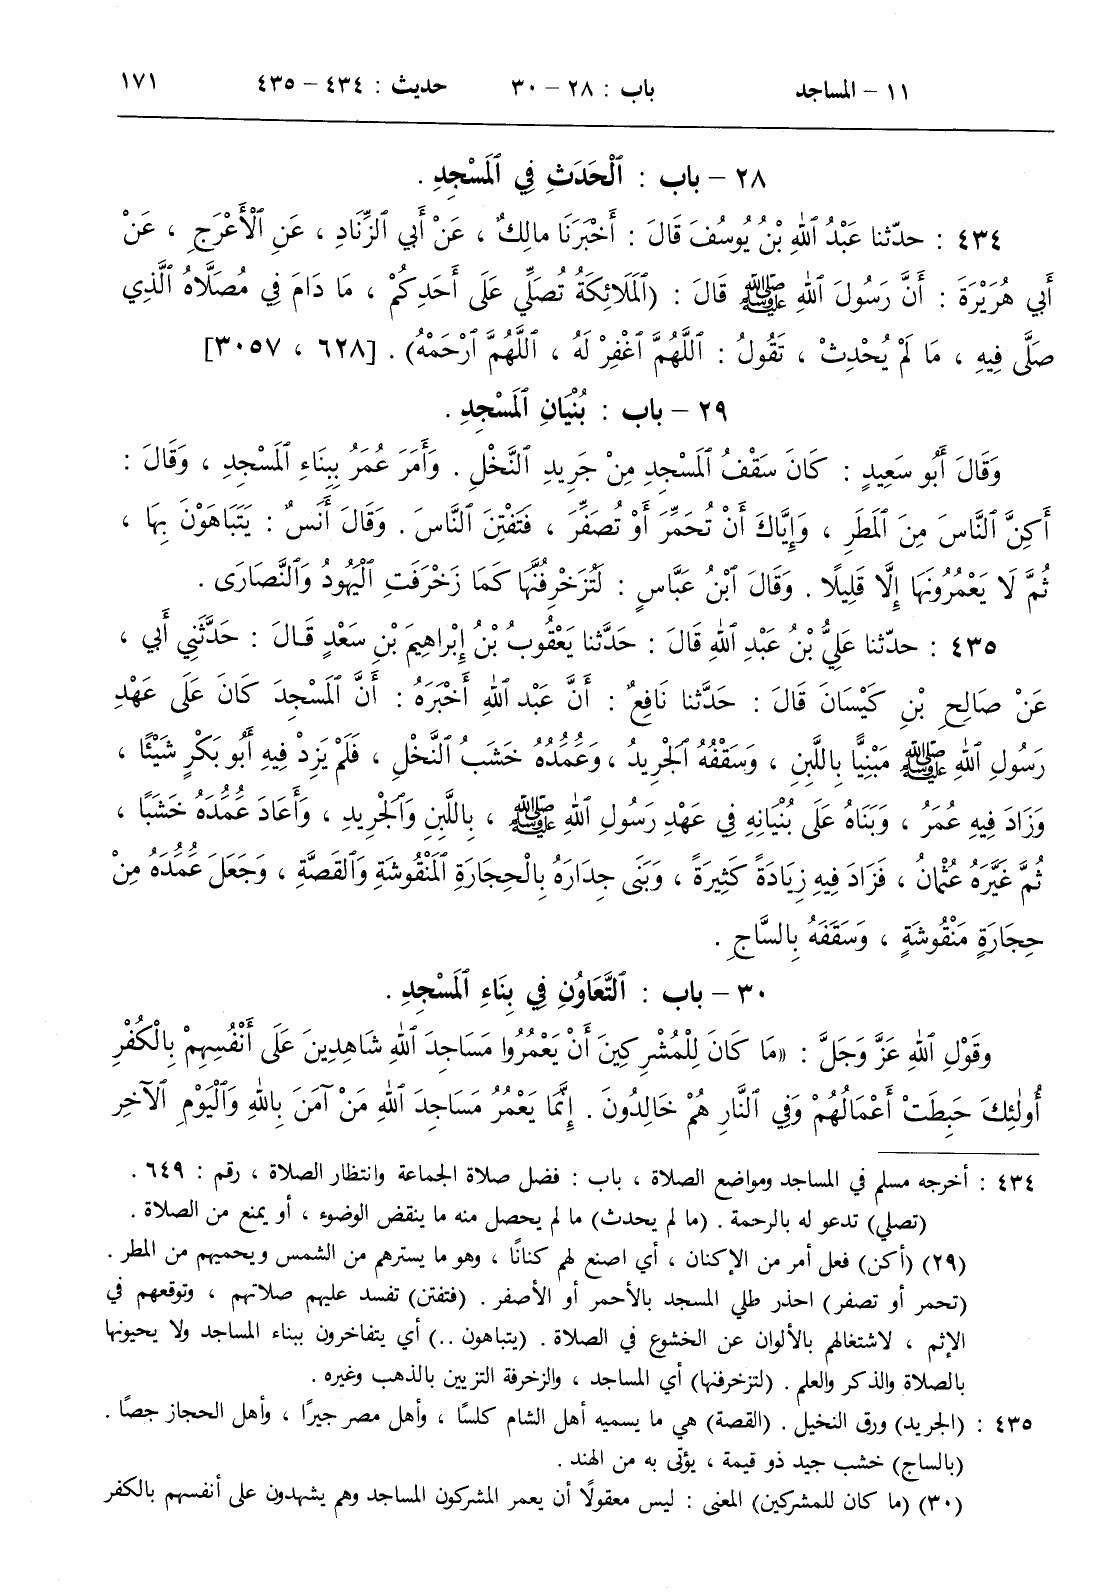 ١١ – المساجد باب : ٢٨ – ٣٠ حديث : ٤٣٤ – ٤٣٥ ١٧١
٢٨ – باب : ٱلْحَدَثِ فِي ٱلْمَسْجِدِ .
٤٣٤ : حدّثنا عَبْدُ ٱللهِ بْنُ يُوسُفَ قَالَ : أَخْبَرَنَا مالِكٌ ، عَنْ أَبِي ٱلزِّنَادِ ، عَنِ ٱلْأَعْرَجِ ، عَنْ
أَبِي هُرَيْرَةَ : أَنَّ رَسُولَ ٱللهِ ﷺ قَالَ : (ٱلْمَلَائِكَةُ تُصَلِّي عَلَى أَحَدِكُمْ ، مَا دَامَ فِي مُصَلَّاهُ ٱلَّذِي
صَلَّى فِيهِ ، مَا لَمْ يُحْدِثْ ، تَقُولُ : ٱللَّهُمَّ ٱغْفِرْ لَهُ ، ٱللَّهُمَّ ٱرْحَمْهُ) . [٦٢٨ ، ٣٠٥٧]
٢٩ – باب : بُنْيَانِ ٱلْمَسْجِدِ .
وَقَالَ أَبُو سَعِيدٍ : كَانَ سَقْفُ ٱلْمَسْجِدِ مِنْ جَرِيدِ ٱلنَّخْلِ . وَأَمَرَ عُمَرُ بِبِنَاءِ ٱلْمَسْجِدِ ، وَقَالَ :
أَكِنَّ ٱلنَّاسَ مِنَ ٱلْمَطَرِ ، وَإِيَّاكَ أَنْ تُحَمِّرَ أَوْ تُصَفِّرَ ، فَتَفْتِنَ ٱلنَّاسَ . وَقَالَ أَنَسٌ : يَتَبَاهَوْنَ بِهَا ،
ثُمَّ لَا يَعْمُرُونَهَا إِلَّا قَلِيلًا . وَقَالَ ٱبْنُ عَبَّاسٍ : لَتُزَخْرِفُنَّهَا كَمَا زَخْرَفَتِ ٱلْيَهُودُ وَٱلنَّصَارَى .
٤٣٥ : حدّثنا عَلِيُّ بْنُ عَبْدِ ٱللهِ قَالَ : حَدَّثنا يَعْقُوبُ بْنُ إِبْراهِيمَ بْنِ سَعْدٍ قَالَ : حَدَّثَنِي أَبِي ،
عَنْ صَالِحِ بْنِ كَيْسَانَ قَالَ : حَدَّثنا نَافِعٌ : أَنَّ عَبْدَ ٱللهِ أَخْبَرَهُ : أَنَّ ٱلْمَسْجِدَ كَانَ عَلَى عَهْدِ
رَسُولِ ٱللهِ ﷺ مَبْنِيًّا بِاللَّبِنِ ، وَسَقْفُهُ ٱلْجَرِيدُ ، وَعُمُدُهُ خَشَبُ ٱلنَّخْلِ ، فَلَمْ يَزِدْ فِيهِ أَبُو بَكْرٍ شَيْئًا ،
وَزَادَ فِيهِ عُمَرُ ، وَبَنَاهُ عَلَى بُنْيَانِهِ فِي عَهْدِ رَسُولِ ٱللهِ ﷺ ، بِاللَّبِنِ وَٱلْجَرِيدِ ، وَأَعَادَ عُمُدَهُ خَشَبًا ،
ثُمَّ غَيَّرَهُ عُثْمَانُ ، فَزَادَ فِيهِ زِيَادَةً كَثِيرَةً ، وَبَنَى جِدَارَهُ بِالْحِجَارَةِ ٱلْمَنْقُوشَةِ وَٱلْقَصَّةِ ، وَجَعَلَ عُمُدَهُ مِنْ
حِجَارَةٍ مَنْقُوشَةٍ ، وَسَقَفَهُ بِالسَّاجِ .
٣٠ – باب : ٱلتَّعَاوُنِ فِي بِنَاءِ ٱلْمَسْجِدِ .
وقَوْلِ ٱللهِ عَزَّ وَجَلَّ : «مَا كَانَ لِلْمُشْرِكِينَ أَنْ يَعْمُرُوا مَسَاجِدَ ٱللهِ شَاهِدِينَ عَلَى أَنْفُسِهِمْ بِالْكُفْرِ
أُولٰئِكَ حَبِطَتْ أَعْمَالُهُمْ وَفِي ٱلنَّارِ هُمْ خَالِدُونَ . إِنَّمَا يَعْمُرُ مَسَاجِدَ ٱللهِ مَنْ آمَنَ بِاللهِ وَٱلْيَوْمِ ٱلْآخِرِ
٤٣٤ : أخرجه مسلم في المساجد ومواضع الصلاة ، باب : فضل صلاة الجماعة وانتظار الصلاة ، رقم : ٦٤٩ .
(تصلي) تدعو له بالرحمة . (ما لم يحدث) ما لم يحصل منه ما ينقض الوضوء ، أو يمنع من الصلاة .
(٢٩) (أكن) فعل أمر من الإكنان ، أي اصنع لهم كنانًا ، وهو ما يسترهم من الشمس ويحميهم من المطر .
(تحمر أو تصفر) احذر طلي المسجد بالأحمر أو الأصفر . (فتفتن) تفسد عليهم صلاتهم ، وتوقعهم في
الإثم ، لاشتغالهم بالألوان عن الخشوع في الصلاة . (يتباهون ..) أي يتفاخرون ببناء المساجد ولا يحيونها
بالصلاة والذكر والعلم . (لتزخرفنها) أي المساجد ، والزخرفة التزيين بالذهب وغيره .
٤٣٥ : (الجريد) ورق النخيل . (القصة) هي ما يسميه أهل الشام كلسًا ، وأهل مصر جيرًا ، وأهل الحجاز جصًا .
(بالساج) خشب جيد ذو قيمة ، يؤتى به من الهند .
(٣٠) (ما كان للمشركين) المعنى : ليس معقولًا أن يعمر المشركون المساجد وهم يشهدون على أنفسهم بالكفر